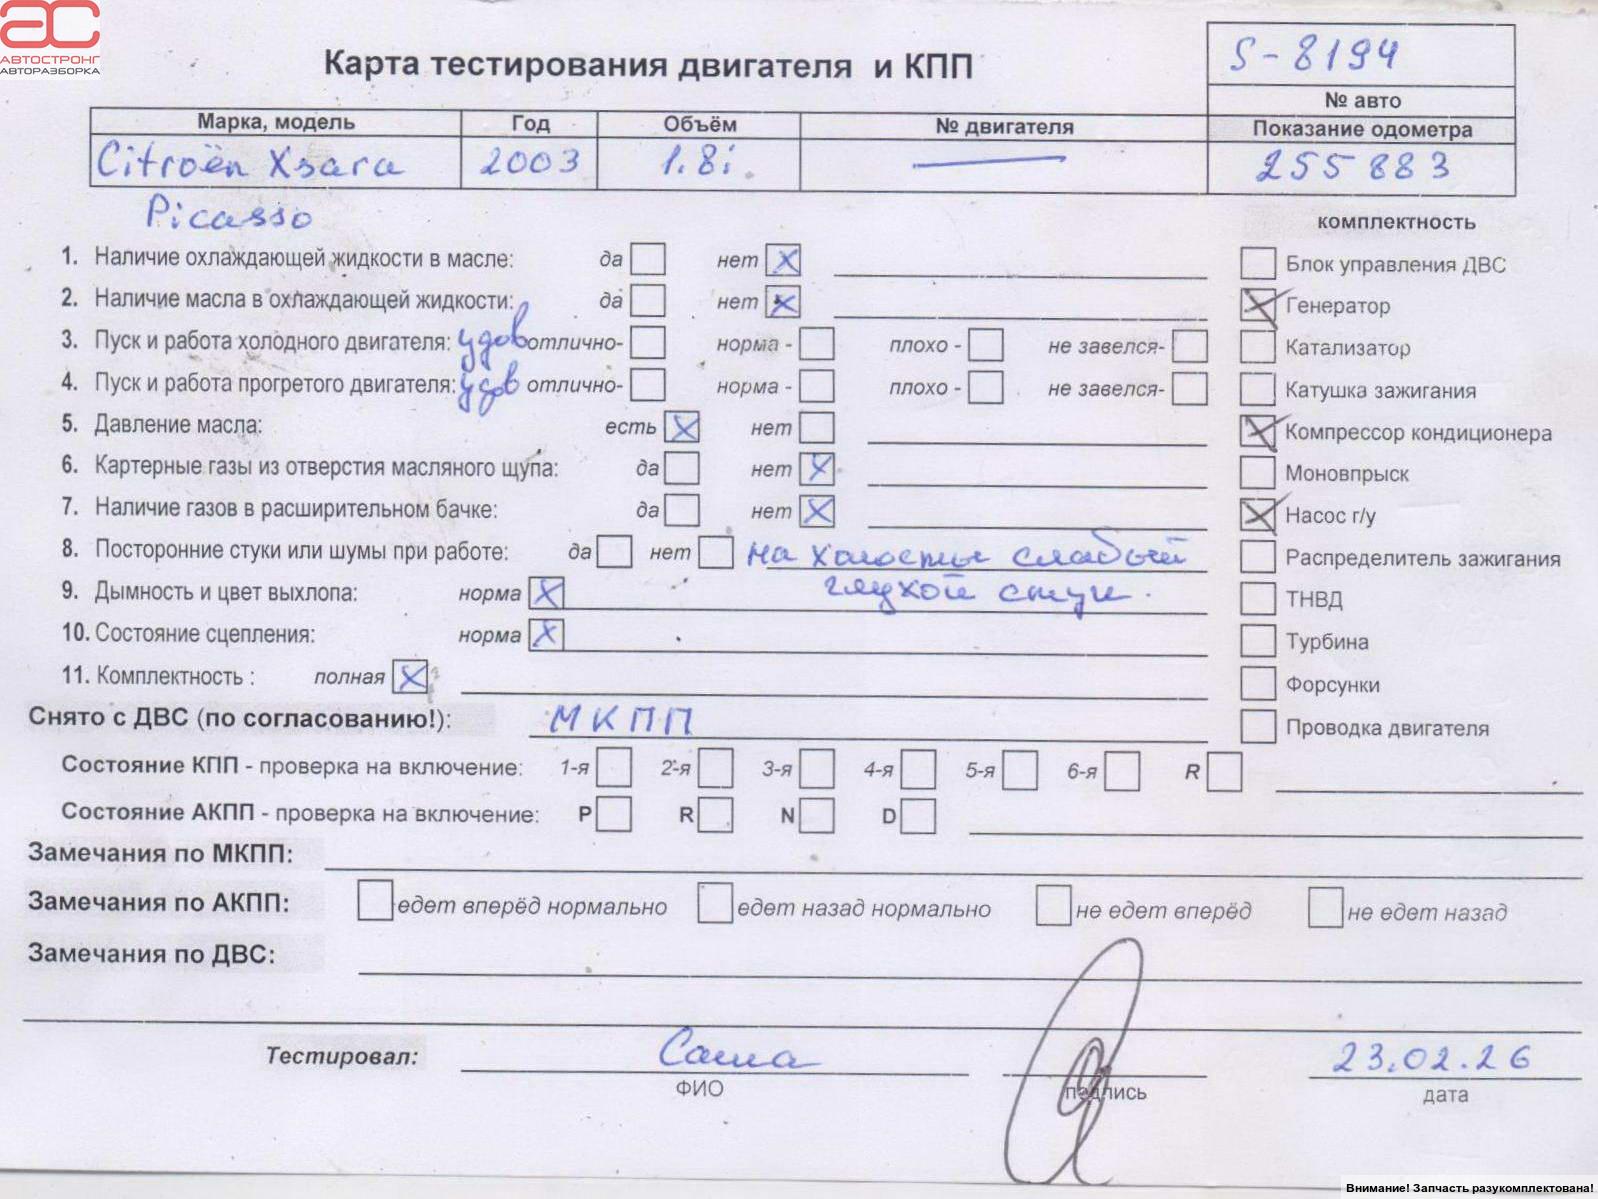 АС
АВТОСТРОНГ
АВТОРАЗБОРКА
Карта тестирования двигателя и КПП
S-8194
№ авто
Марка, модель Год Объём № двигателя Показание одометра
Citroën Xsara 2003 1.8i — 255883
Picasso
комплектность
1. Наличие охлаждающей жидкости в масле: да нет X
Блок управления ДВС
2. Наличие масла в охлаждающей жидкости: да нет X
X Генератор
3. Пуск и работа холодного двигателя: удов отлично- норма - плохо - не завелся-
Катализатор
4. Пуск и работа прогретого двигателя: удов отлично- норма - плохо - не завелся-
Катушка зажигания
5. Давление масла: есть X нет
X Компрессор кондиционера
6. Картерные газы из отверстия масляного щупа: да нет X
Моновпрыск
7. Наличие газов в расширительном бачке: да нет X
X Насос г/у
8. Посторонние стуки или шумы при работе: да нет на холосты слабый
Распределитель зажигания
9. Дымность и цвет выхлопа: норма X глухой стук.
ТНВД
10. Состояние сцепления: норма X
Турбина
11. Комплектность : полная X
Форсунки
Снято с ДВС (по согласованию!): МКПП
Проводка двигателя
Состояние КПП - проверка на включение: 1-я 2-я 3-я 4-я 5-я 6-я R
Состояние АКПП - проверка на включение: P R N D
Замечания по МКПП:
Замечания по АКПП: едет вперёд нормально едет назад нормально не едет вперёд не едет назад
Замечания по ДВС:
Тестировал: Саша 23.02.26
ФИО подпись дата
Внимание! Запчасть разукомплектована!